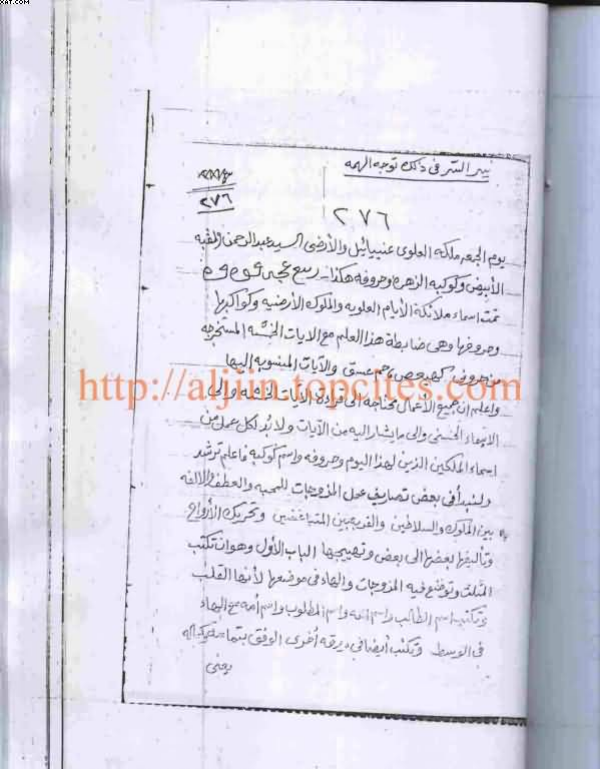 xat.com
نير السر فى ذلك توجه الهمه
٢٧٦
٢٧٦
يوم الجمعه ملكه العلوى عنيائيل والأرضى السيد عبد الرحمن الملقبه
الأبيض وكوكبه الزهره وحروفه هكذا
تمت اسماء ملائكة الأيام العلويه والملوك الأرضيه وكواكبها
وحروفها وهى ضابطة هذا العلم مع الايات الخمسه المستخرجه
من حروف كهيعص وحمعسق والآيات المنسوبه إليها
واعلم ان جميع الأعمال محتاجه الى قراءة الآيات والى
http://aljjin.topcites.com
الاسماء الحسنى والى ما يشار اليه من الآيات ولا بد لكل عمل من
اسماء الملكين الذين لهذا اليوم وحروفه واسم كوكبه فاعلم ترشد
ولنبدأ فى بعض تصاريف عمل المزوجات للمحبه والعطف والالفه
بين الملوك والسلاطين والقريبين المتباغضين وتحريك الأرواح
وتأليفها بعضها الى بعض وتهييجها الباب الأول وهو ان تكتب
المثلث وتوضع فيه المزدوجات والهاء فى موضعها لأنها القلب
وتكتب اسم الطالب واسم امه واسم المطلوب واسم أمه مع الهاء
فى الوسط وتكتب أيضا فى ورقه أخرى الوفق بتمامه
يعنى